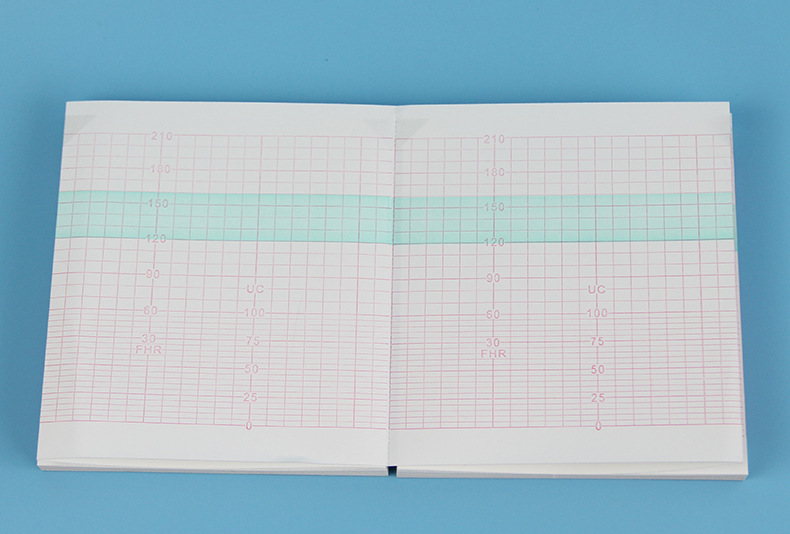 210
180
150
120
90
60
30
FHR
UC
100
75
50
25
0
210
180
150
120
90
60
30
FHR
UC
100
75
50
25
0